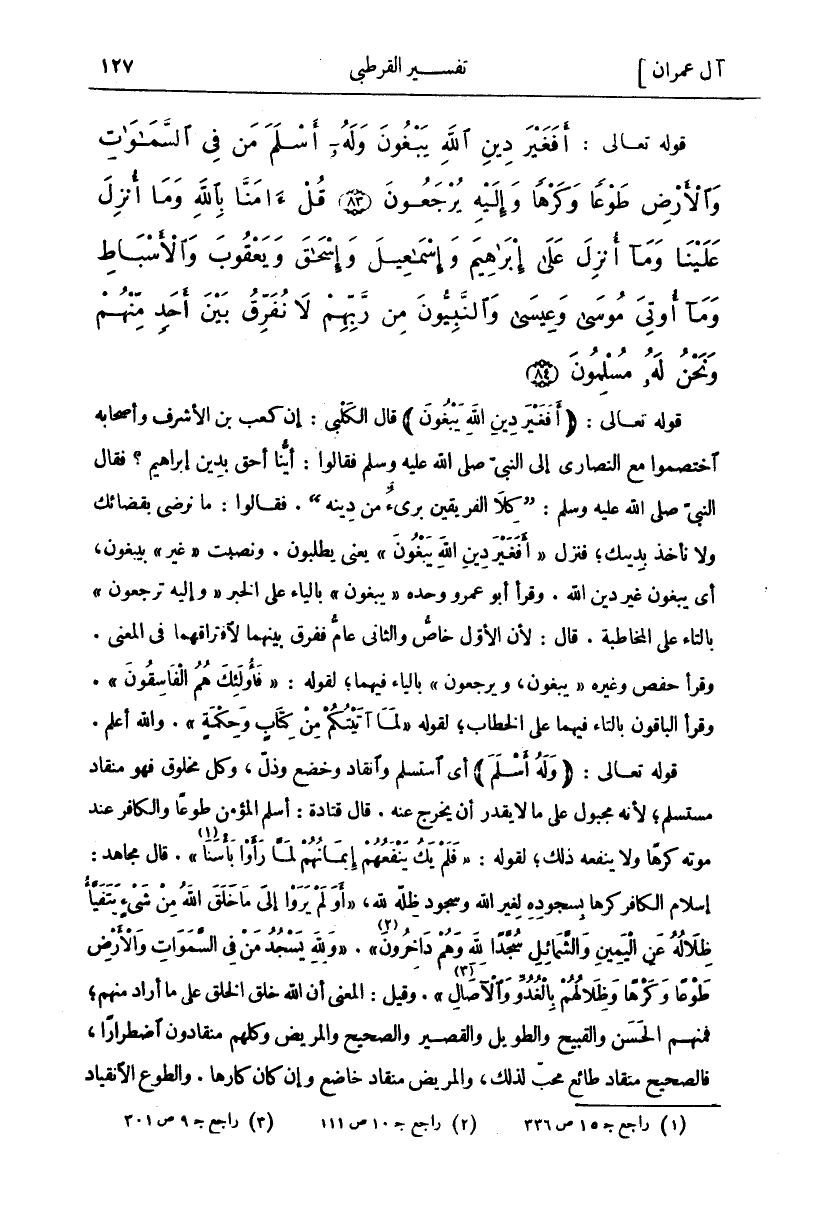 آل عمران ] تفسير القرطبى ١٢٧
قوله تعالى : أَفَغَيْرَ دِينِ ٱللَّهِ يَبْغُونَ وَلَهُۥٓ أَسْلَمَ مَن فِى ٱلسَّمَـٰوَٰتِ
وَٱلْأَرْضِ طَوْعًا وَكَرْهًا وَإِلَيْهِ يُرْجَعُونَ ﴿٨٣﴾ قُلْ ءَامَنَّا بِٱللَّهِ وَمَآ أُنزِلَ
عَلَيْنَا وَمَآ أُنزِلَ عَلَىٰٓ إِبْرَٰهِيمَ وَإِسْمَـٰعِيلَ وَإِسْحَـٰقَ وَيَعْقُوبَ وَٱلْأَسْبَاطِ
وَمَآ أُوتِىَ مُوسَىٰ وَعِيسَىٰ وَٱلنَّبِيُّونَ مِن رَّبِّهِمْ لَا نُفَرِّقُ بَيْنَ أَحَدٍ مِّنْهُمْ
وَنَحْنُ لَهُۥ مُسْلِمُونَ ﴿٨٤﴾
قوله تعالى : ﴿أَفَغَيْرَ دِينِ اللهِ يَبْغُونَ﴾ قال الكَلْبى : إن كعب بن الأشرف وأصحابه
ٱختصموا مع النصارى إلى النبىّ صلى الله عليه وسلم فقالوا : أيُّنا أحق بدِين إبراهيم ؟ فقال
النبىّ صلى الله عليه وسلم : ”كِلَا الفريقين برىءٌ من دِينه“ . فقالوا : ما نرضى بقضائك
ولا نأخذ بدِينك؛ فنزل « أَفَغَيْرَ دِينِ اللهِ يَبْغُونَ » يعنى يطلبون . ونصبت « غير » بيبغون،
أى يبغون غير دين الله . وقرأ أبو عمرو وحده « يبغون » بالياء على الخبر « وإليه ترجعون »
بالتاء على المخاطبة . قال : لأن الأوّل خاصٌّ والثانى عامٌّ ففرق بينهما لٱفتراقهما فى المعنى .
وقرأ حفص وغيره « يبغون، ويرجعون » بالياء فيهما؛ لقوله : « فَأُولَئِكَ هُمُ الْفَاسِقُونَ » .
وقرأ الباقون بالتاء فيهما على الخطاب؛ لقوله «لَمَا آتَيْتُكُمْ مِنْ كِتَابٍ وَحِكْمَةٍ » . والله أعلم .
قوله تعالى : ﴿وَلَهُ أَسْلَمَ﴾ أى ٱستسلم وٱنقاد وخضع وذلّ ، وكل مخلوق فهو منقاد
مستسلم؛ لأنه مجبول على ما لا يقدر أن يخرج عنه . قال قتادة : أسلم المؤمن طوعًا والكافر عند
موته كرهًا ولا ينفعه ذلك؛ لقوله : « فَلَمْ يَكُ يَنْفَعُهُمْ إِيمَانُهُمْ لَمَّا رَأَوْا بَأْسَنَا » (١) . قال مجاهد :
إسلام الكافر كرها بسجوده لغير الله وسجود ظلّه لله، «أَوَلَمْ يَرَوْا إِلَى مَا خَلَقَ اللهُ مِنْ شَىْءٍ يَتَفَيَّأُ
ظِلَالُهُ عَنِ الْيَمِينِ وَالشَّمَائِلِ سُجَّدًا لِلهِ وَهُمْ دَاخِرُونَ» (٢) . «وَلِلهِ يَسْجُدُ مَنْ فِى السَّمَوَاتِ وَالْأَرْضِ
طَوْعًا وَكَرْهًا وَظِلَالُهُمْ بِالْغُدُوِّ وَالْآصَالِ » (٣) . وقيل : المعنى أن الله خلق الخلق على ما أراد منهم؛
فمنهم الحَسَن والقبيح والطويل والقصير والصحيح والمريض وكلهم منقادون ٱضطرارًا ،
فالصحيح منقاد طائع محبّ لذلك، والمريض منقاد خاضع وإن كان كارها . والطوع الٱنقياد
(١) راجع ج ١٥ ص ٣٣٦ (٢) راجع ج ١٠ ص ١١١ (٣) راجع ج ٩ ص ٣٠١